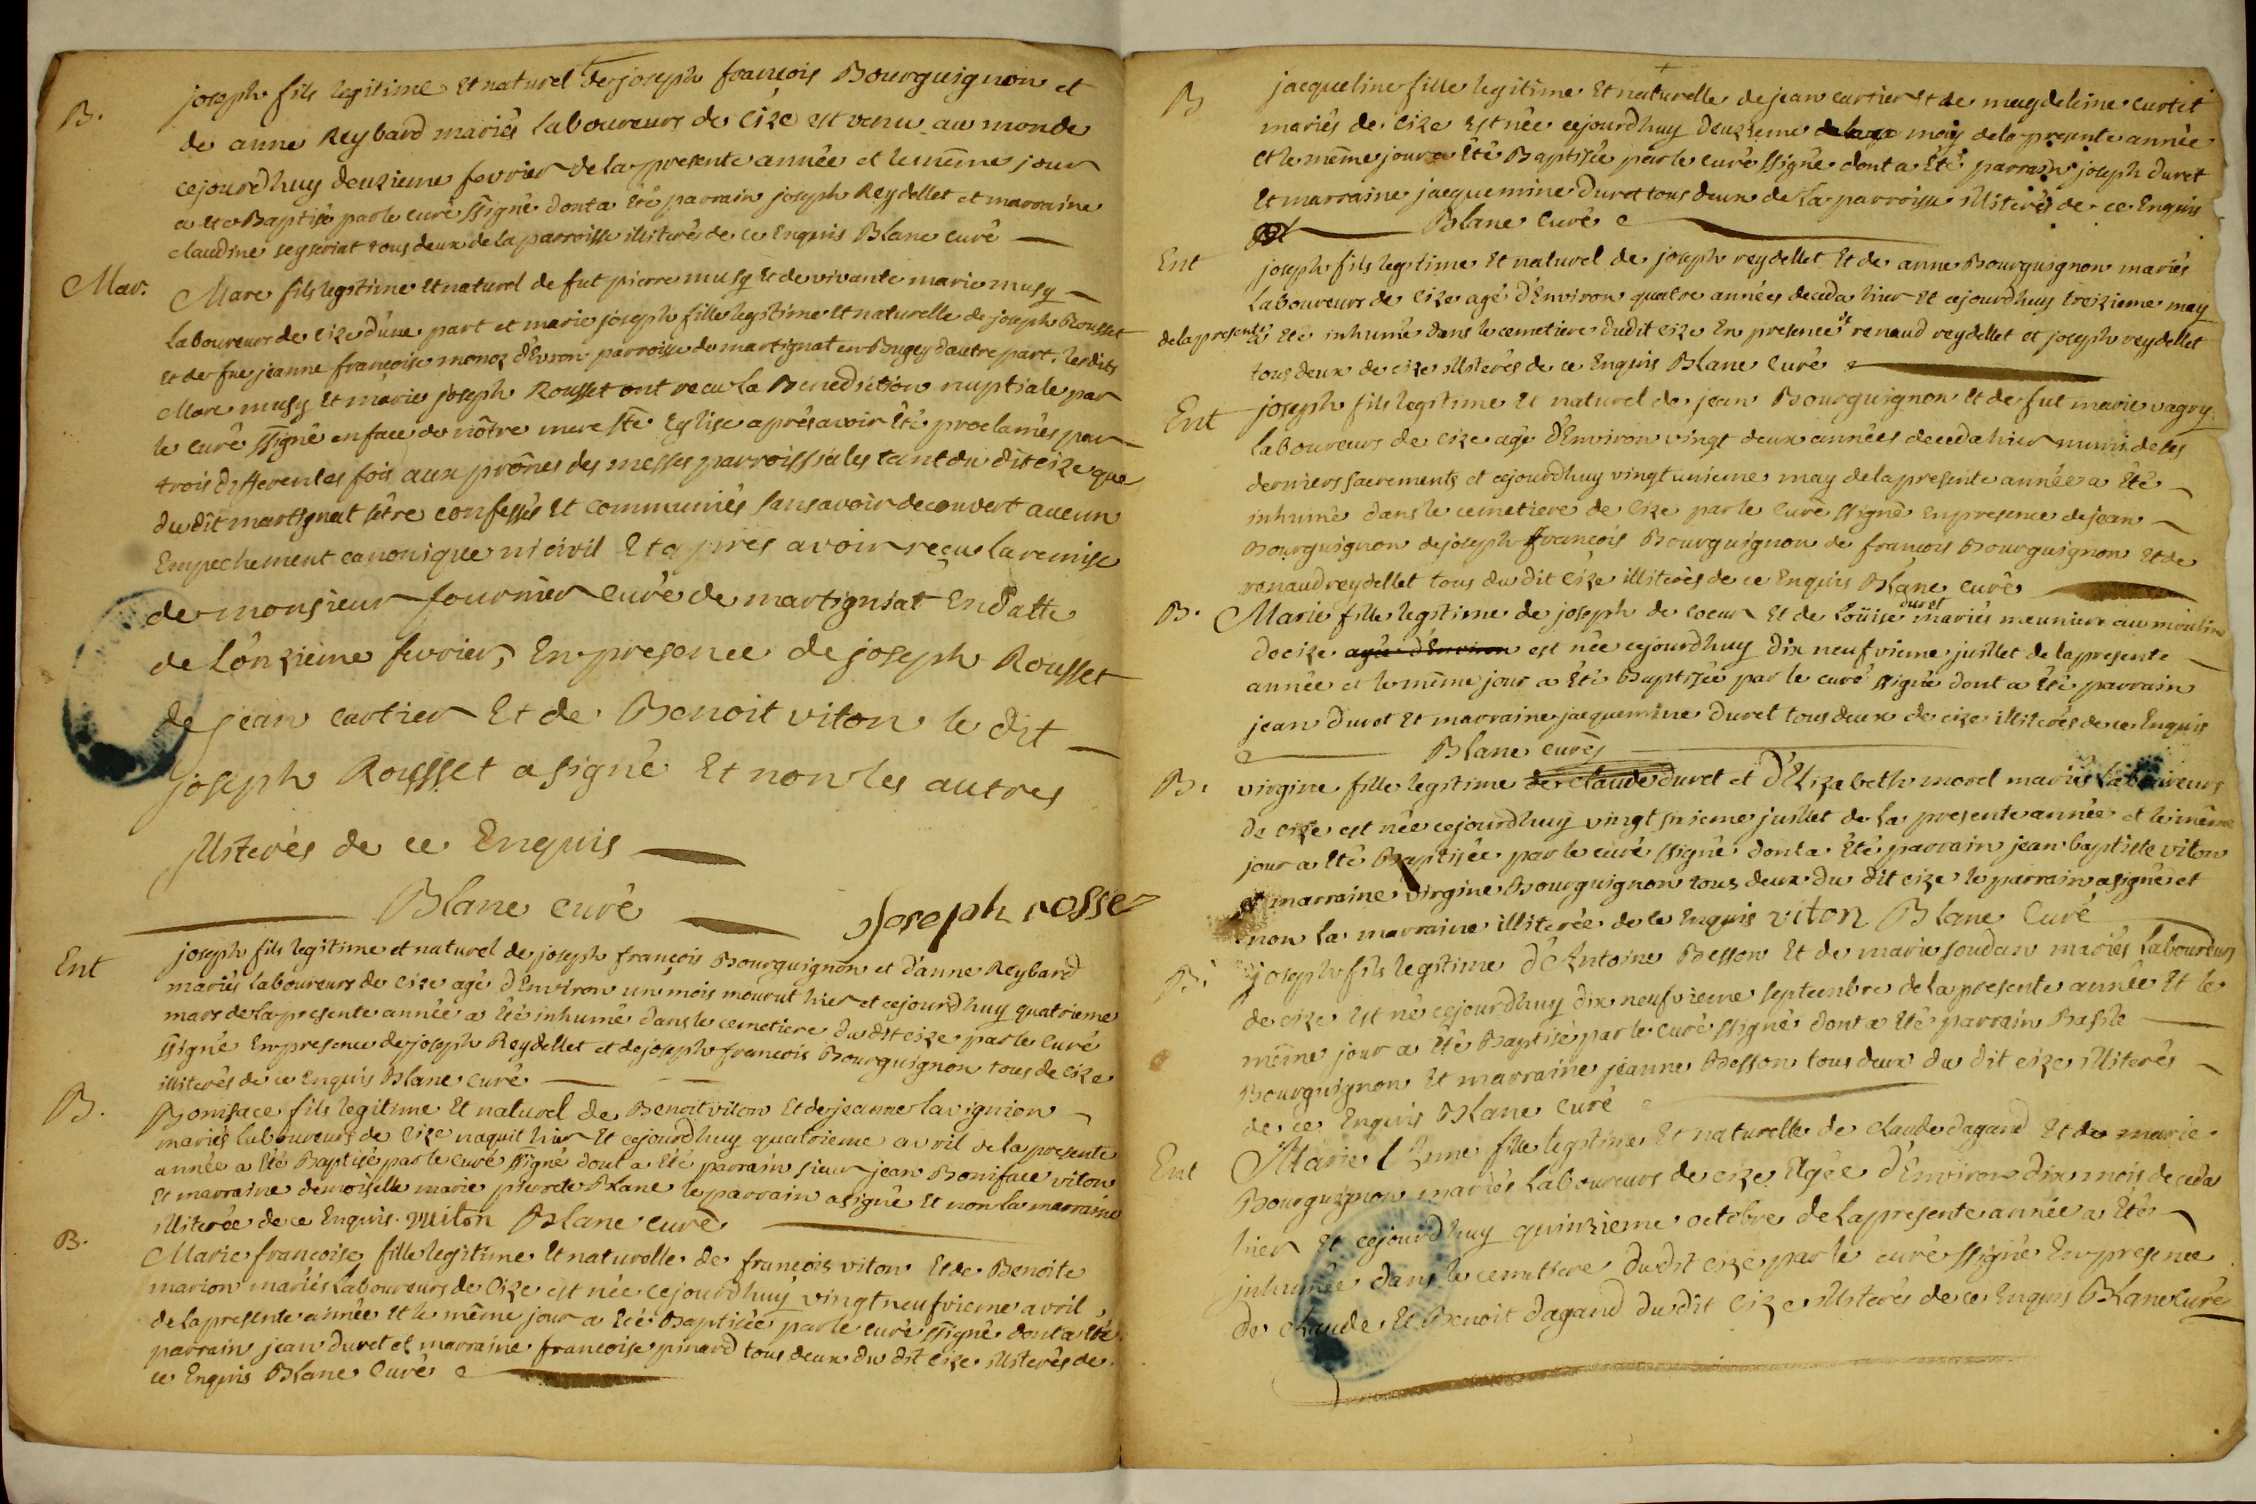 B.
joseph fils legitime Et naturel de joseph françois Bourguignon et
de anne Reybard mariés laboureurs de Cize est venu au monde
cejourdhuy deuxieme fevrier de la presente année et le même jour
a eté Baptisé par le curé ssigné dont a Eté parrain joseph Reydellet et marraine
claudine seyseriat tous deux de la parroisse illiterés de ce Enquis Blanc curé
Mar.
Marc fils legitime Et naturel de fut pierre musy Et de vivante marie musy
laboureurs de Cize d'une part et marie joseph fille legitime Et naturelle de joseph Rousset
Et de fue jeanne françoise monoz d'Evron parroisse de martignat en Bugey d'autre part, lesdits
Marc musy Et marie joseph Rousset ont recu la Benediction nuptiale par
le curé ssigné en face de nôtre mere ste Eglise après avoir Eté proclamés par
trois differentes fois aux prônes des messes parroissiales tant du dit cize que
du dit martignat s'être confessés Et communiés sans avoir decouvert aucun
Empechement canonique ni civil Et apres avoir reçu la remise
de monsieur fournier curé de martigniat En datte
de l'onzieme fevrier, En presence de joseph Rousset
de jean cartier Et de Benoit viton le dit
joseph Rousset a signé Et non les autres
illiterés de ce Enquis
Blanc curé joseph rosse
Ent
joseph fils legitime et naturel de joseph françois Bourguignon et d'anne Reybard
mariés laboureurs de Cize agé d'Environ un mois mourut hier et cejourdhuy quatrieme
mars de la presente année a Eté inhumé dans le cemetiere du dit cize par le Curé
ssigné En presence de joseph Reydellet et de joseph francois Bourguignon tous de Cize
illiterés de ce Enquis Blanc curé
B.
Boniface fils legitime Et naturel de Benoit viton Et de jeanne lavignion
mariés laboureurs de Cize naquit hier Et cejourdhuy quatrieme avril de la presente
année a Eté Baptisé par le curé ssigné dont a Eté parrain sieur jean Boniface viton
Et marraine demoiselle marie pierrete Blanc le parrain a signé Et non la marraine
illiterée de ce Enquis. viton Blanc curé
B.
Marie francoise fille legitime Et naturelle de francois viton Et de Benoite
marion mariés laboureurs de Cize est née cejourdhuy vingt neufvieme avril
de la presente année Et le même jour a Eté Baptisée par le curé ssigné dont a Eté
parrain jean duret et marraine francoise pinard tous deux du dit Cize illiterés de
ce Enquis Blanc Curé
B
jacqueline fille legitime Et naturelle de jean cartier Et de magdeleine curtit
mariés de Cize est née cejourdhuy deuxieme may de la presente année
Et le même jour a Eté Baptisée par le curé ssigné dont a Eté parrain joseph duret
Et marraine jacquemine duret tous deux de la parroisse illiterés de ce Enquis
Blanc Curé
Ent
joseph fils legitime Et naturel de joseph reydellet Et de anne Bourguignon mariés
laboureurs de Cize agé d'Environ quatre années deceda hier Et cejourdhuy treizieme may
de la presente Eté inhumé dans le cemetiere du dit cize En presence de renaud reydellet et joseph reydellet
tous deux de cize illiterés de ce Enquis Blanc Curé
Ent
joseph fils legitime Et naturel de jean Bourguignon Et de fut marie vagry
laboureurs de Cize agé d'Environ vingt deux années deceda hier muni de ses
derniers sacrements et cejourdhuy vingt unieme may de la presente année a Eté
inhumé dans le cemetiere de Cize par le Curé ssigné En presence de jean
Bourguignon de joseph francois Bourguignon de francois Bourguignon Et de
renaud reydellet tous du dit Cize illiterés de ce Enquis Blanc Curé
B.
duret
Marie fille legitime de joseph de coeur Et de Loüise mariés meuniers au moulin
de cize agée d'Environ est née cejourdhuy dix neufvieme juillet de la presente
année et le même jour a Eté Baptisée par le curé ssigné dont a Eté parrain
jean duret Et marraine jacquemine duret tous deux de cize illiterés de ce Enquis
Blanc curé
B.
virgine fille legitime de claude duret et d'Elizabeth morel mariés laboureurs
de cize est née cejourdhuy vingt sixieme juillet de la presente année et le même
jour a Eté Baptisée par le curé ssigné dont a Eté parrain jean baptiste viton
et marraine virgine Bourguignon tous deux du dit cize le parrain a signé et
non la marraine illiterée de ce Enquis viton Blanc Curé
B.
joseph fils legitime d'Antoine Besson Et de marie soudan mariés laboureurs
de cize Est né cejourdhuy dix neufvieme septembre de la presente année Et le
même jour a Eté Baptisé par le curé ssigné dont a Eté parrain Basile
Bourguignon Et marraine jeanne Besson tous deux du dit cize illiterés
de ce Enquis Blanc Curé
Ent
Marie fille legitime Et naturelle de claude dagand Et de marie
Bourguignon mariés laboureurs de cize Agée d'Environ dix mois deceda
hier Et cejourdhuy quinzieme octobre de la presente année a Eté
inhumée dans le cemetiere du dit cize par le curé ssigné En presence
de claude Et Benoit dagand du dit Cize illiterés de ce Enquis Blanc Curé